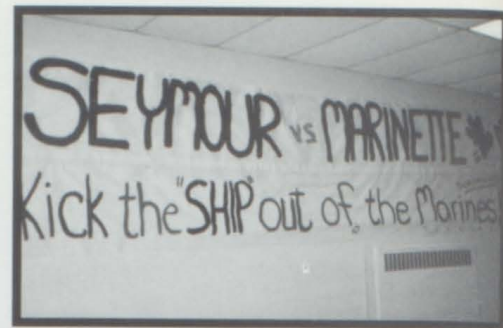 SEYMOUR vs MARINETTE
Kick the "SHIP" out of the Marines